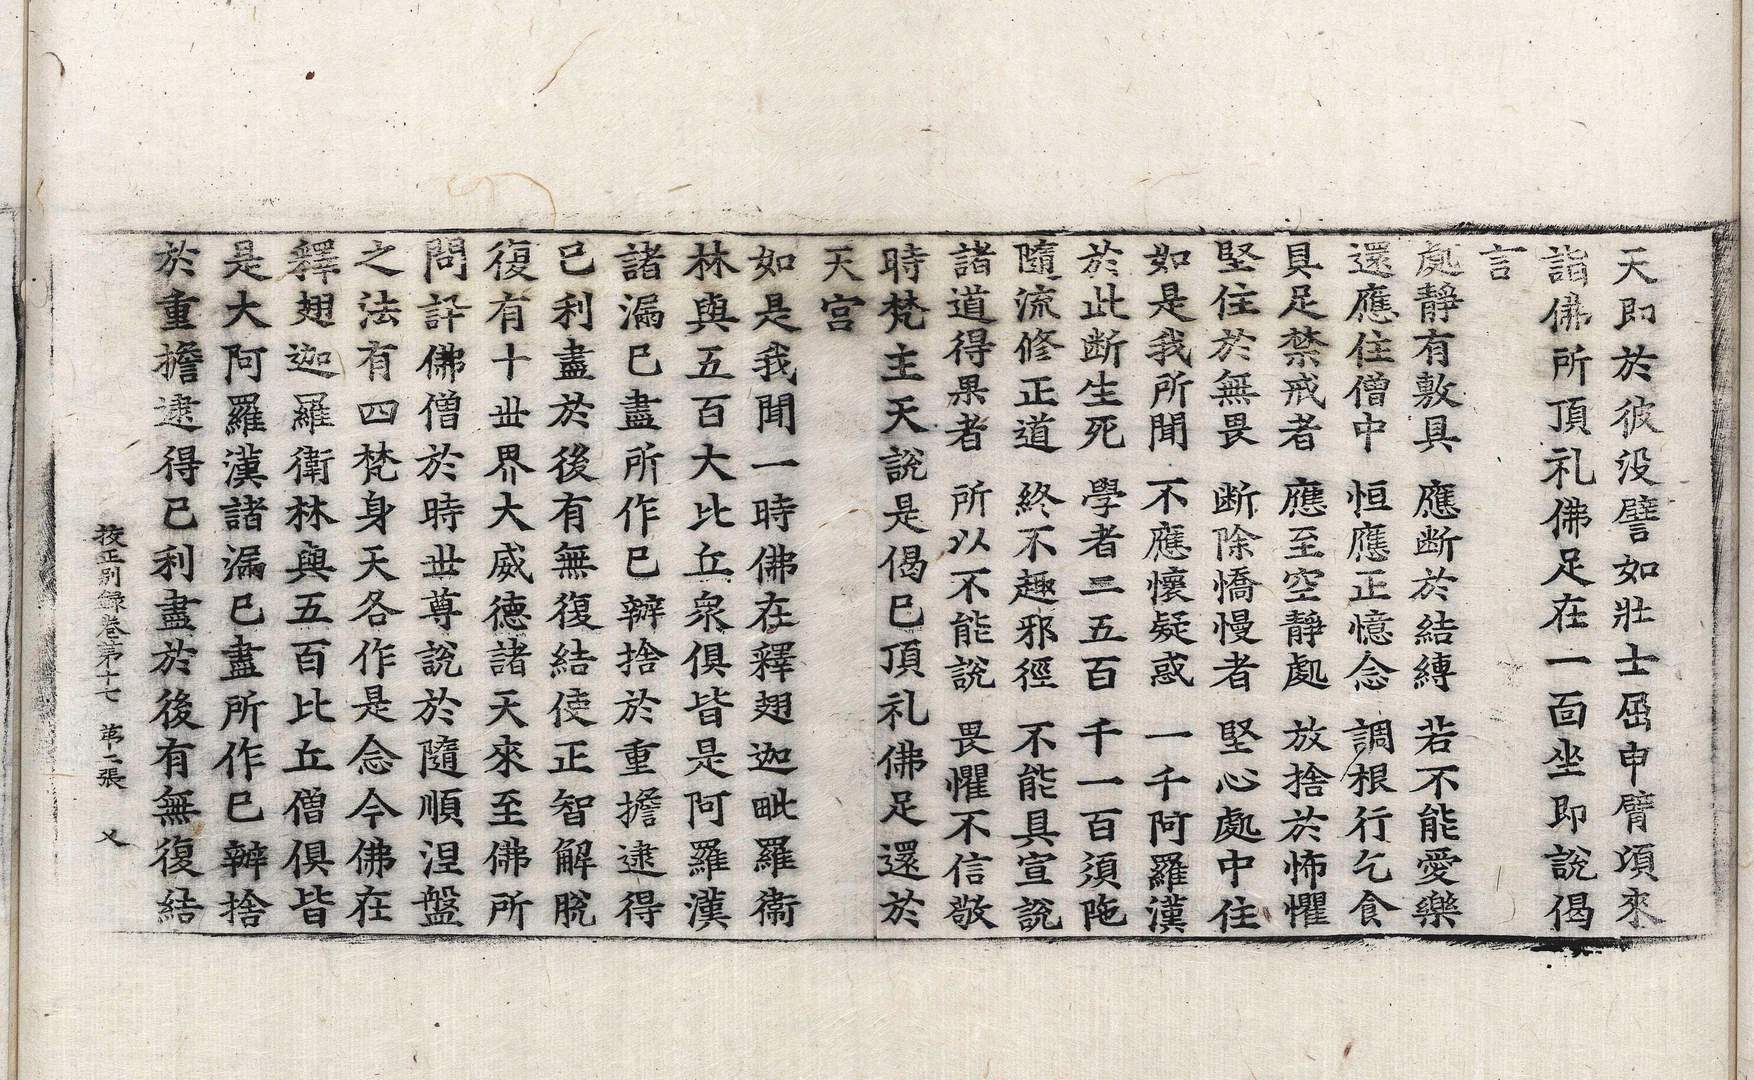 天即於彼没譬如壯士屈申臂頃來
詣佛所頂礼佛足在一面坐即說偈
言
處靜有敷具　應断於結縛　若不能愛樂
還應住僧中　恒應正憶念　調根行乞食
具足禁戒者　應至空靜處　放捨於怖懼
堅住於無畏　断除憍慢者　堅心處中住
如是我所聞　不應懷疑惑　一千阿羅漢
於此断生死　學者二五百　千一百須陁
隨流修正道　終不趣邪徑　不能具宣說
諸道得果者　所以不能說　畏懼不信敬
時梵主天說是偈已頂礼佛足還於
天宮
如是我聞一時佛在釋翅迦毗羅衛
林與五百大比丘衆俱皆是阿羅漢
諸漏已盡所作已辦捨於重擔逮得
己利盡於後有無復結使正智解脫
復有十世界大威德諸天來至佛所
問訊佛僧於時世尊說於隨順涅盤
之法有四梵身天各作是念今佛在
釋翅迦羅衛林與五百比丘僧俱皆
是大阿羅漢諸漏已盡所作已辦捨
於重擔逮得己利盡於後有無復結
校正別録卷第十七　第十二張　㐅